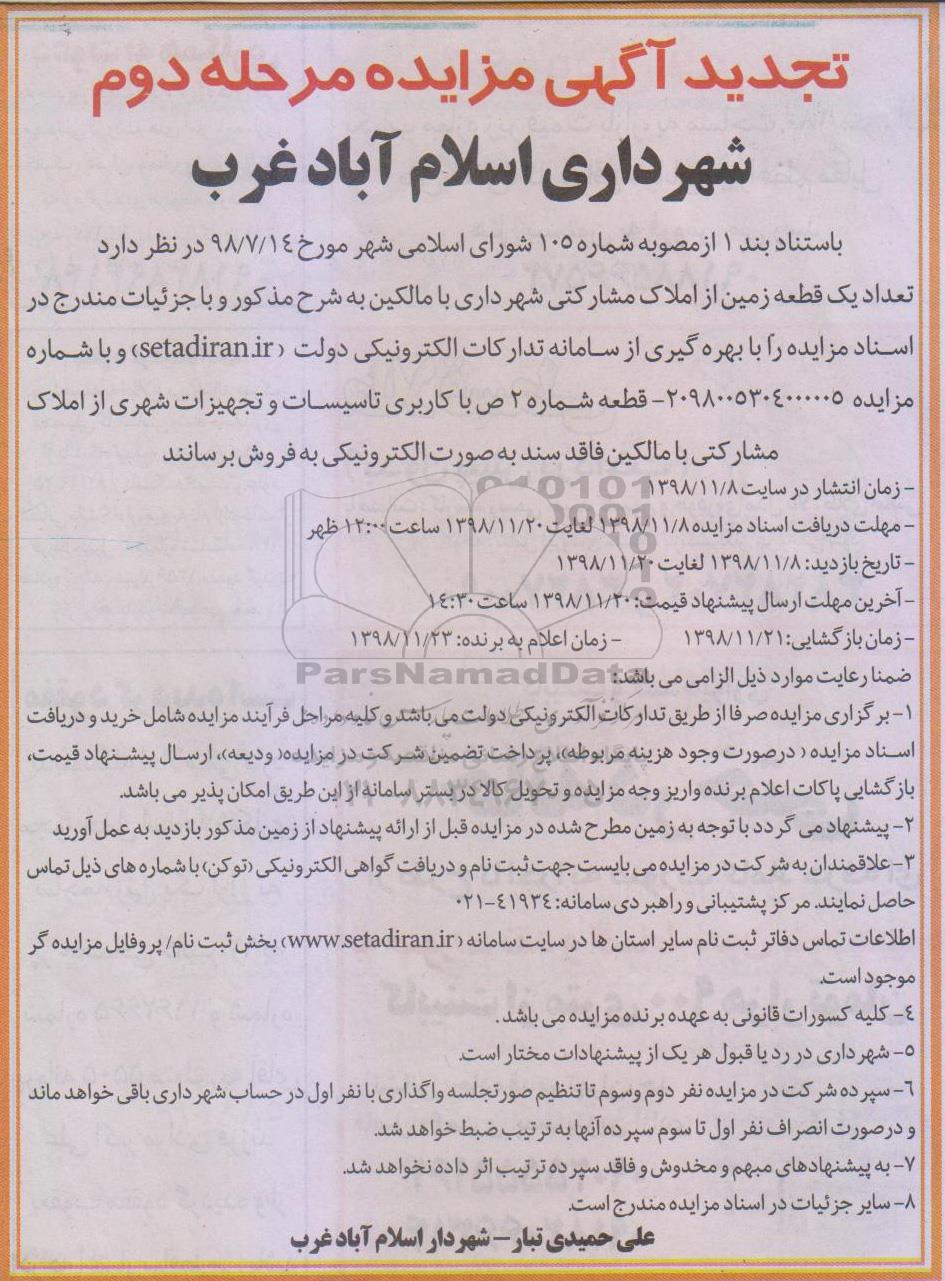 تجدید آگهی مزایده مرحله دوم
شهرداری اسلام آباد غرب
باستناد بند ۱ ازمصوبه شماره ۱۰۵ شورای اسلامی شهر مورخ ۹۸/۷/۱۴ در نظر دارد
تعداد یک قطعه زمین از املاک مشارکتی شهرداری با مالکین به شرح مذکور و با جزئیات مندرج در
اسناد مزایده را با بهره گیری از سامانه تدارکات الکترونیکی دولت (setadiran.ir) و با شماره
مزایده ۲۰۹۸۰۰۵۳۰۴۰۰۰۰۰۵- قطعه شماره ۲ ص با کاربری تاسیسات و تجهیزات شهری از املاک
مشارکتی با مالکین فاقد سند به صورت الکترونیکی به فروش برسانند
- زمان انتشار در سایت ۱۳۹۸/۱۱/۸
- مهلت دریافت اسناد مزایده ۱۳۹۸/۱۱/۸ لغایت ۱۳۹۸/۱۱/۲۰ ساعت ۱۲:۰۰ ظهر
- تاریخ بازدید: ۱۳۹۸/۱۱/۸ لغایت ۱۳۹۸/۱۱/۲۰
- آخرین مهلت ارسال پیشنهاد قیمت: ۱۳۹۸/۱۱/۲۰ ساعت ۱۴:۳۰
- زمان بازگشایی: ۱۳۹۸/۱۱/۲۱ - زمان اعلام به برنده: ۱۳۹۸/۱۱/۲۳
ParsNamadData
ضمنا رعایت موارد ذیل الزامی می باشد:
۱- برگزاری مزایده صرفا از طریق تدارکات الکترونیکی دولت می باشد و کلیه مراحل فرآیند مزایده شامل خرید و دریافت
اسناد مزایده ( درصورت وجود هزینه مربوطه)، پرداخت تضمین شرکت در مزایده( ودیعه)، ارسال پیشنهاد قیمت،
بازگشایی پاکات اعلام برنده واریز وجه مزایده و تحویل کالا در بستر سامانه از این طریق امکان پذیر می باشد.
۲- پیشنهاد می گردد با توجه به زمین مطرح شده در مزایده قبل از ارائه پیشنهاد از زمین مذکور بازدید به عمل آورید
۳- علاقمندان به شرکت در مزایده می بایست جهت ثبت نام و دریافت گواهی الکترونیکی (توکن) با شماره های ذیل تماس
حاصل نمایند. مرکز پشتیبانی و راهبردی سامانه: ۴۱۹۳۴-۰۲۱
اطلاعات تماس دفاتر ثبت نام سایر استان ها در سایت سامانه (www.setadiran.ir) بخش ثبت نام/ پروفایل مزایده گر
موجود است.
۴- کلیه کسورات قانونی به عهده برنده مزایده می باشد .
۵- شهرداری در رد یا قبول هر یک از پیشنهادات مختار است.
۶- سپرده شرکت در مزایده نفر دوم وسوم تا تنظیم صورتجلسه واگذاری با نفر اول در حساب شهرداری باقی خواهد ماند
و درصورت انصراف نفر اول تا سوم سپرده آنها به ترتیب ضبط خواهد شد.
۷- به پیشنهادهای مبهم و مخدوش و فاقد سپرده ترتیب اثر داده نخواهد شد.
۸- سایر جزئیات در اسناد مزایده مندرج است.
علی حمیدی تبار - شهردار اسلام آباد غرب